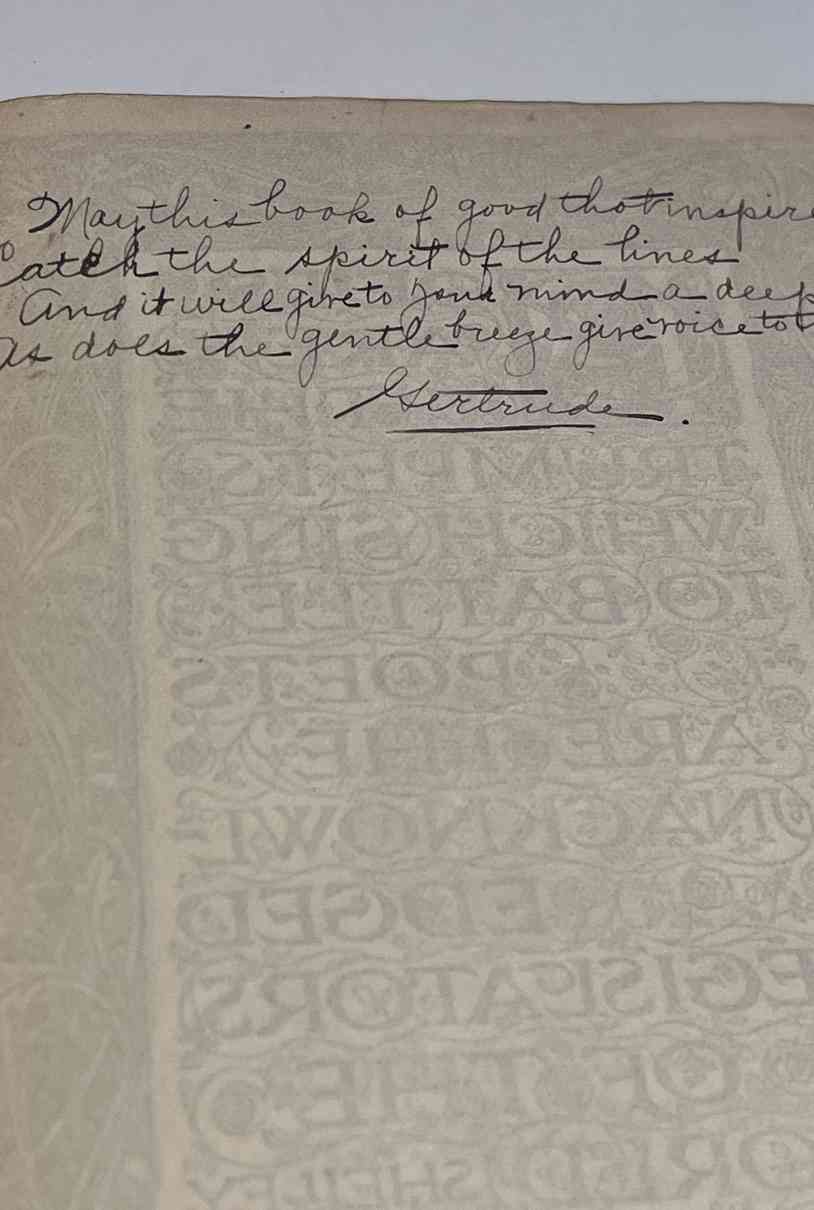 May this book of good thot inspire
Catch the spirit of the lines
And it will give to your mind a deep
As does the gentle breeze give voice to
Gertrude.
THE
TRUMPETS
WHICH SING
TO BATTLE
POETS
ARE THE
UNACKNOWL
EDGED
LEGISLATORS
OF THE
WORLD SHELLEY